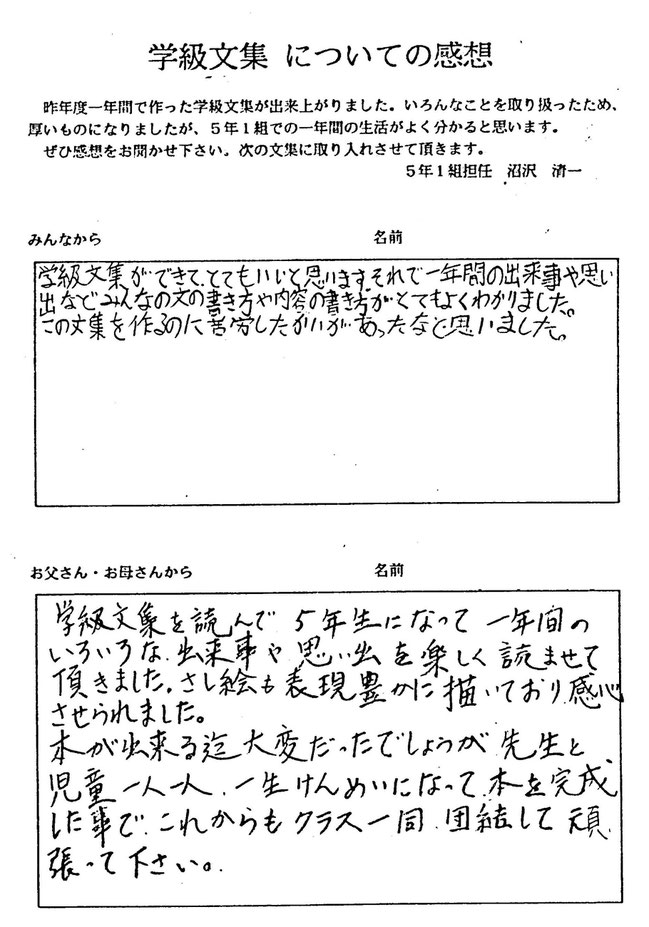 学級文集 についての感想
昨年度一年間で作った学級文集が出来上がりました。いろんなことを取り扱ったため、
厚いものになりましたが、5年1組での一年間の生活がよく分かると思います。
ぜひ感想をお聞かせ下さい。次の文集に取り入れさせて頂きます。
5年1組担任 沼沢 清一
みんなから 名前
学級文集ができて、とてもいいと思います。それで一年間の出来事や思い
出などみんなの文の書き方や内容の書き方がとてもよくわかりました。
この文集を作るのに苦労したかいがあったなと思いました。
お父さん・お母さんから 名前
学級文集を読んで 5年生になって 一年間の
いろいろな出来事や思い出を楽しく読ませて
頂きました。さし絵も表現豊かに描いており、感心
させられました。
本が出来る迄大変だったでしょうが、先生と、
児童一人一人、一生けんめいになって、本を完成
した事で、これからもクラス一同、団結して頑
張って下さい。